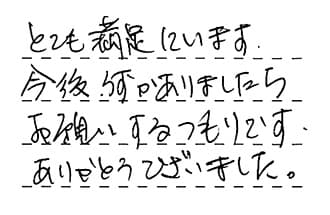 とても満足しています.
今後何かありましたら
お願いするつもりです.
ありがとうございました。